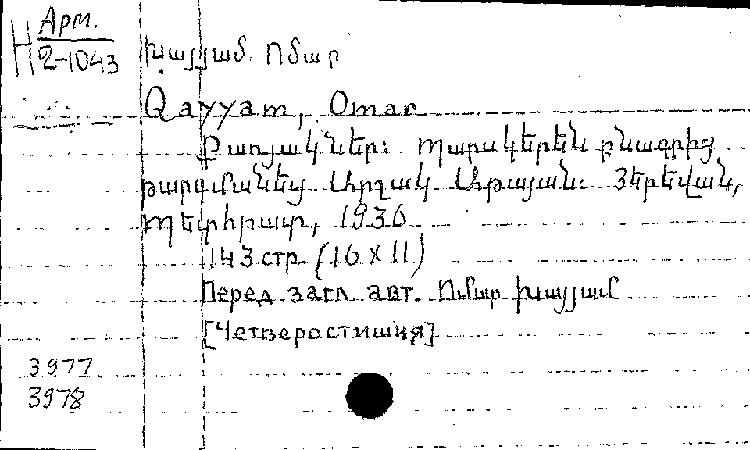 Арм.
Н 2-1043
Խայյամ Օմար
Qayyam, Omar
Քառյակներ: Պարսկերեն բնագրից
թարգմանեց Արշակ Աթայան: Յերեվան,
Պետհրատ, 1930
143 стр (16 x 11)
Перед загл. авт. Омар Խայյամ
[Четверостишия]
3977
3978